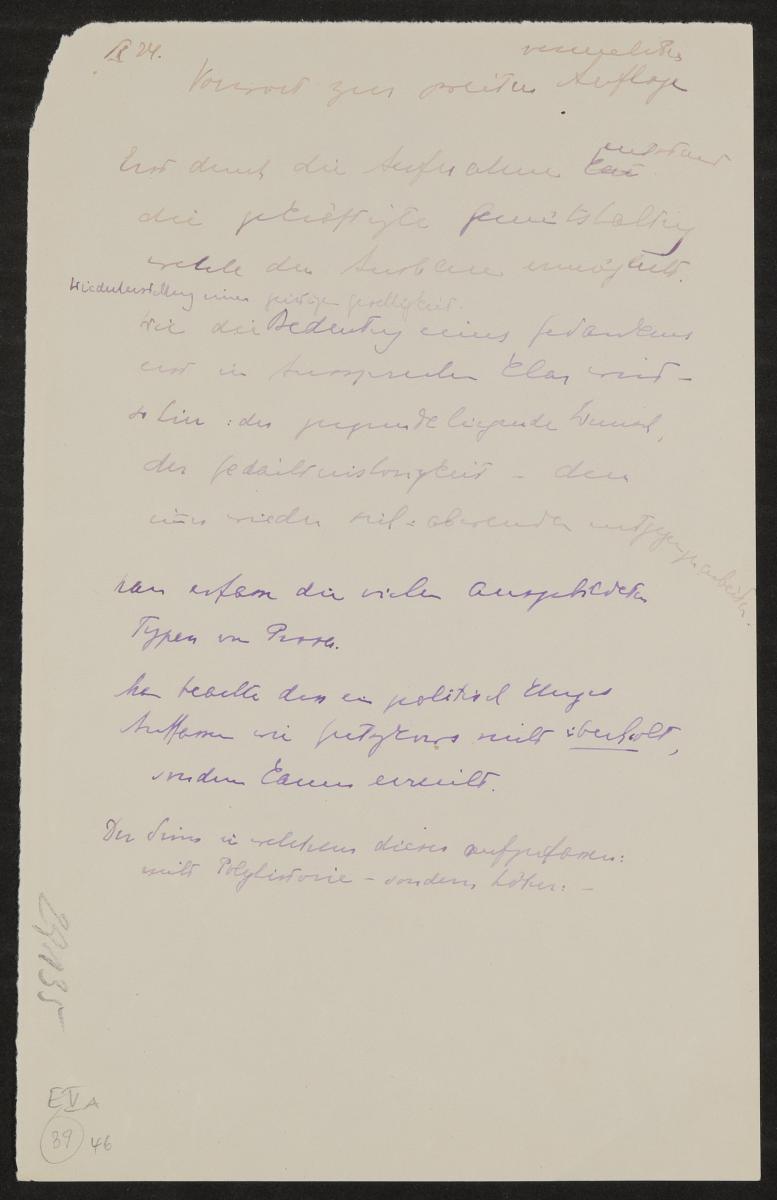 IX 24.
vermehrten
Vorwort zur zweiten Auflage
Erst durch die Aufnahme entstand
die gekräftigte Gemütshaltung
welche den Ausbau ermöglicht.
Wiederherstellung einer geistigen Geselligkeit.
Wie die Bedeutung eines Gedankens
erst im Aussprechen klar wird –
so hier: der zugrundeliegende Wunsch,
der Gedächtnislosigkeit – dem
immer wieder entgegenzuarbeiten.
man erfasse die vielen ausgebildeten
Typen von Prosa.
Man beachte dass ein politisch kluges
Auffassen wie nicht überholt,
sondern kaum erreicht.
Der Sinn in welchem dieses aufzufassen:
nicht Polyhistorie – sondern höher: –
29135
E V A
39 46